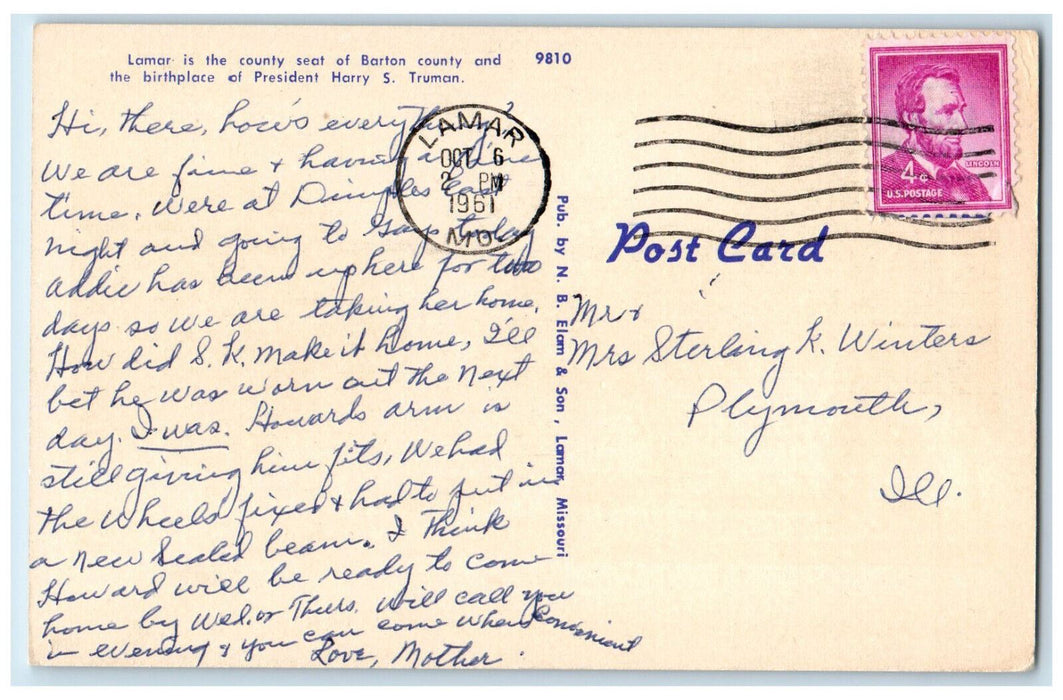 Lamar is the county seat of Barton county and
the birthplace of President Harry S. Truman.
9810
Hi, there, how's everything?
We are fine & having a fine
time. Were at Dimples last
night and going to Gays today
Addie has been up here for two
days so we are taking her home.
How did S. K. make it home, I'll
bet he was worn out the next
day. I was. Howards arm is
still giving him fits, We had
the wheels fixed & had to put in
a new sealed beam. I think
Howard will be ready to come
home by Wed. or Thurs. Will call you
in evening & you can come when convenient
Love, Mother.
LAMAR
OCT 6
2 PM
1961
MO.
Pub. by N. B. Elam & Son, Lamar, Missouri
LINCOLN
4¢
U.S. POSTAGE
Post Card
Mr &
Mrs Sterling K. Winters
Plymouth,
Ill.